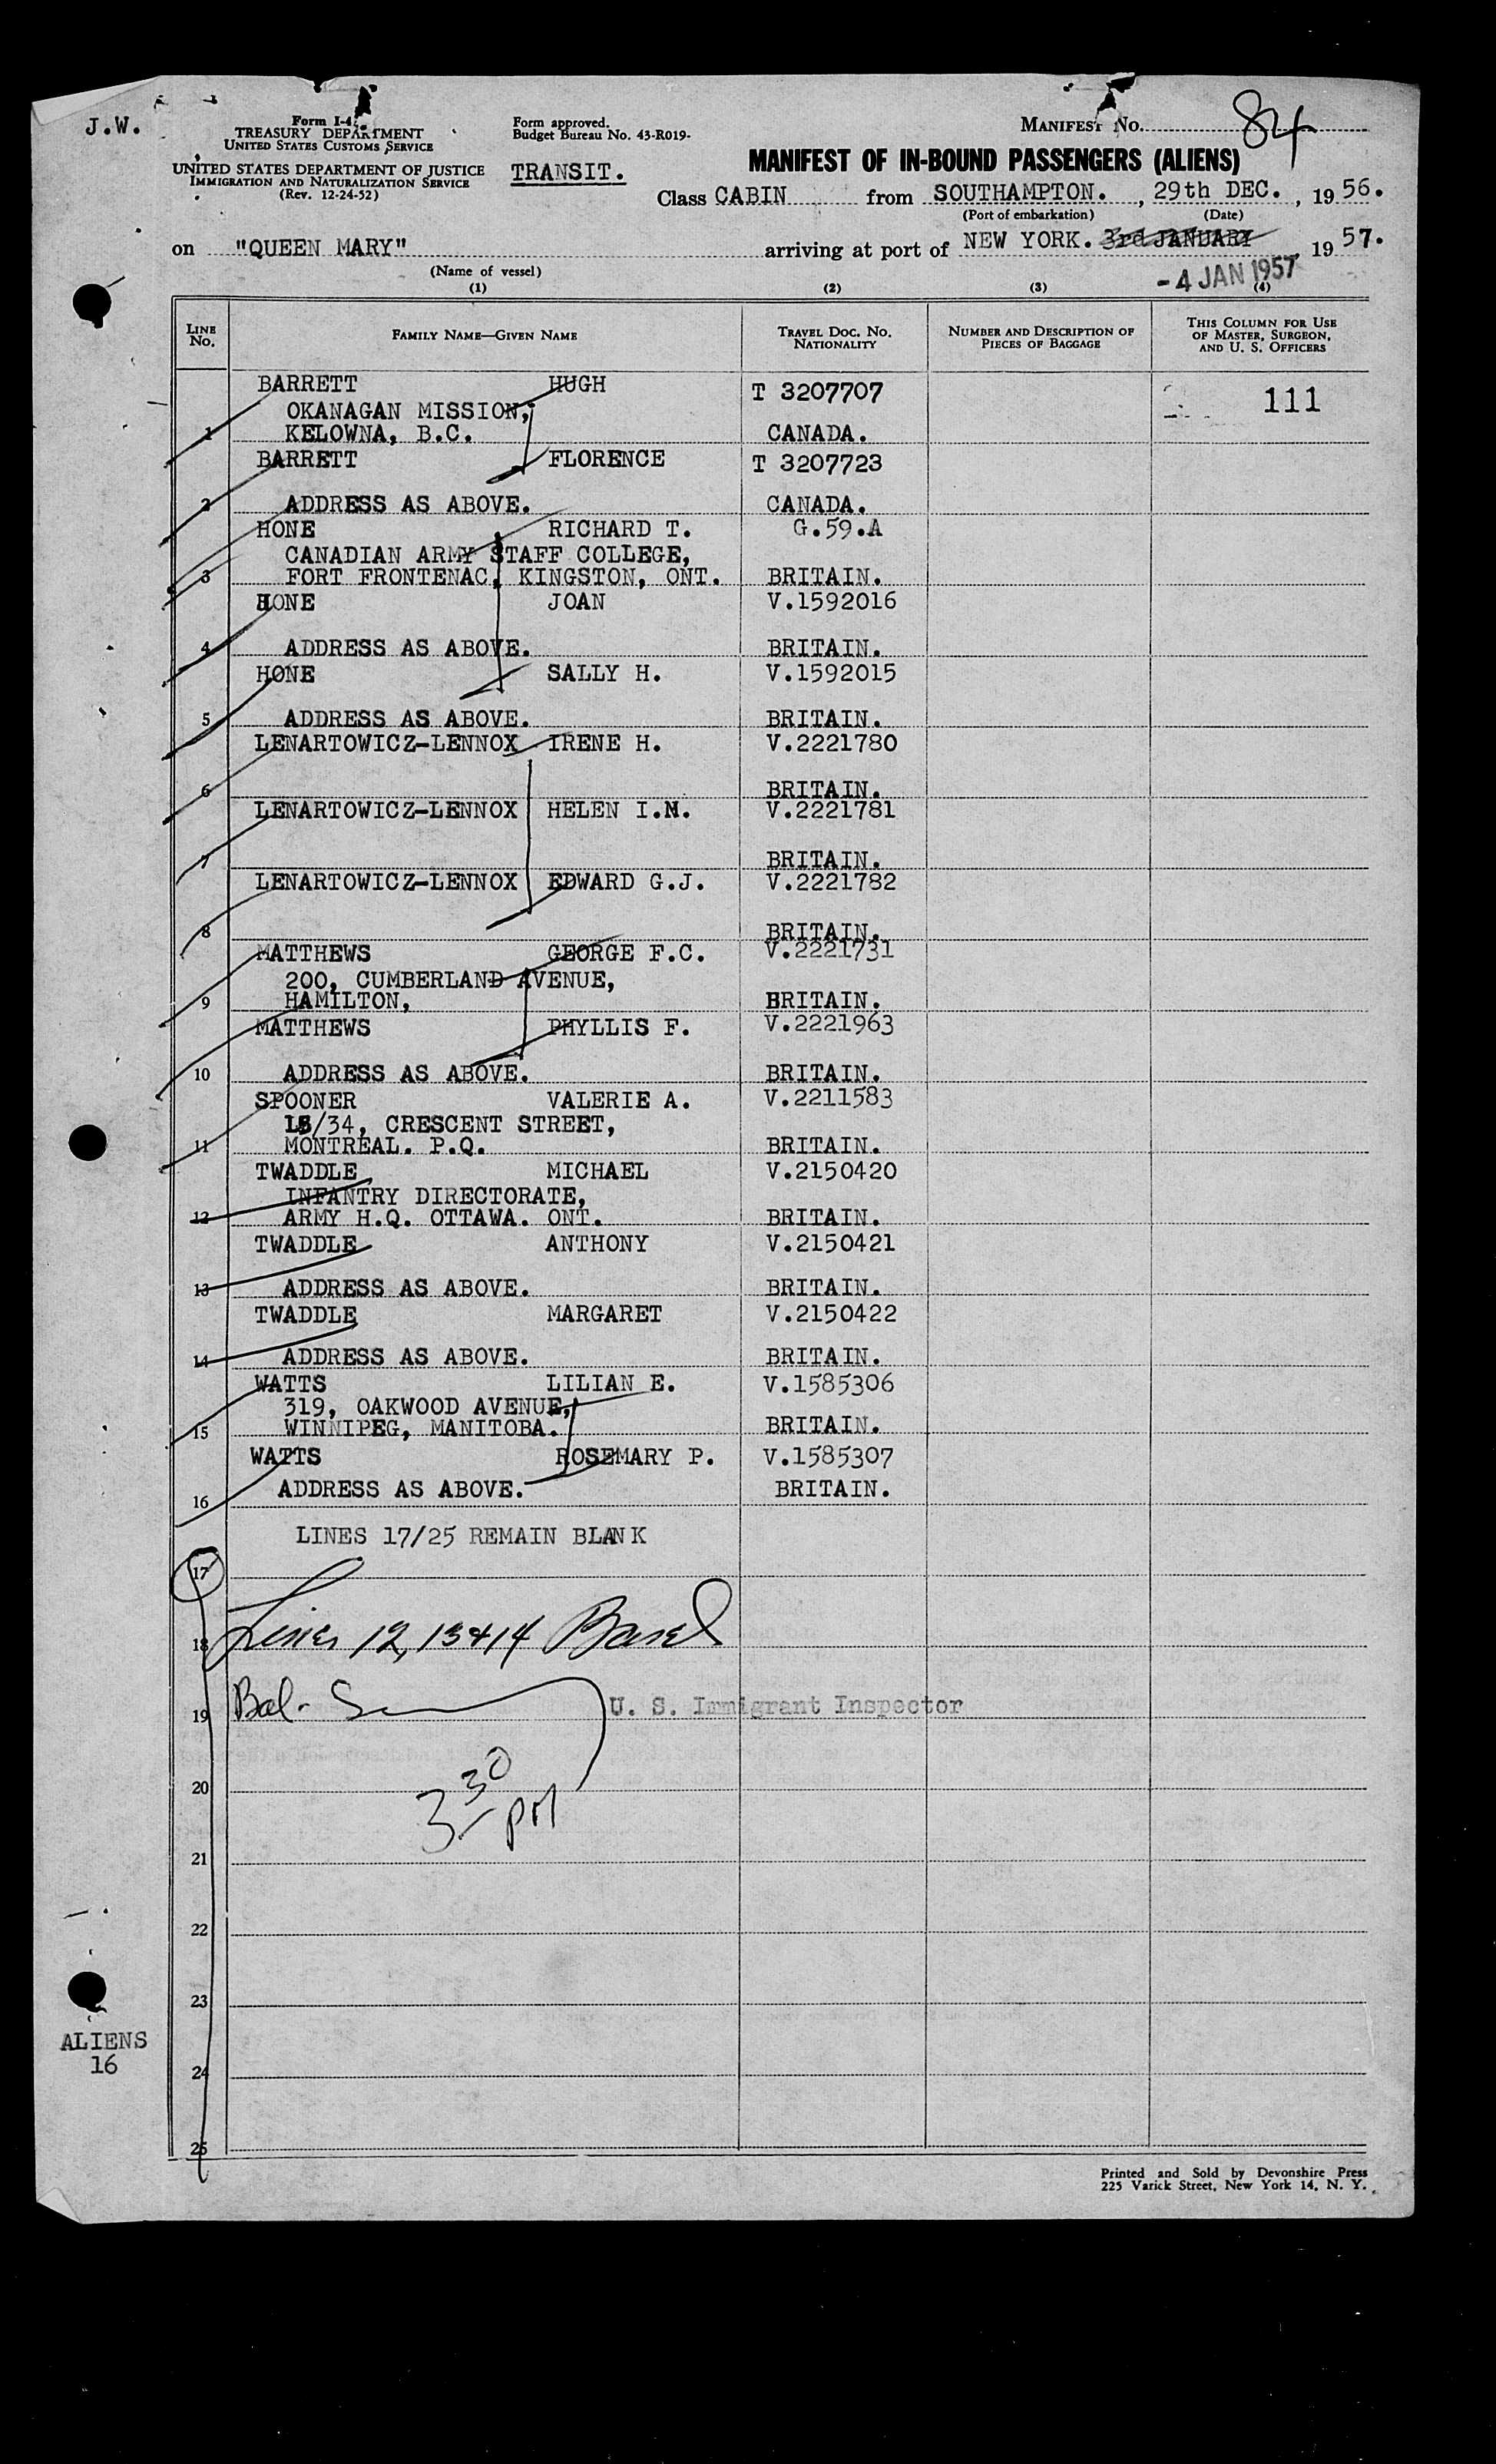 J.W.
Form I-4
TREASURY DEPARTMENT
UNITED STATES CUSTOMS SERVICE
UNITED STATES DEPARTMENT OF JUSTICE
IMMIGRATION AND NATURALIZATION SERVICE
(Rev. 12-24-52)
Form approved.
Budget Bureau No. 43-R019-
TRANSIT.
MANIFEST NO. 84
MANIFEST OF IN-BOUND PASSENGERS (ALIENS)
Class CABIN from SOUTHAMPTON. , 29th DEC. , 19 56.
(Port of embarkation) (Date)
on "QUEEN MARY" arriving at port of NEW YORK. 3rd JANUARY 19 57.
(Name of vessel)
- 4 JAN 1957
(1) (2) (3) (4)
LINE NO. FAMILY NAME—GIVEN NAME TRAVEL DOC. NO. NATIONALITY NUMBER AND DESCRIPTION OF PIECES OF BAGGAGE THIS COLUMN FOR USE OF MASTER, SURGEON, AND U. S. OFFICERS
BARRETT HUGH T 3207707 111
OKANAGAN MISSION,
1 KELOWNA, B.C. CANADA.
BARRETT FLORENCE T 3207723
2 ADDRESS AS ABOVE. CANADA.
HONE RICHARD T. G.59.A
CANADIAN ARMY STAFF COLLEGE,
3 FORT FRONTENAC, KINGSTON, ONT. BRITAIN.
HONE JOAN V.1592016
4 ADDRESS AS ABOVE. BRITAIN.
HONE SALLY H. V.1592015
5 ADDRESS AS ABOVE. BRITAIN.
LENARTOWICZ-LENNOX IRENE H. V.2221780
6 BRITAIN.
LENARTOWICZ-LENNOX HELEN I.M. V.2221781
7 BRITAIN.
LENARTOWICZ-LENNOX EDWARD G.J. V.2221782
8 BRITAIN.
MATTHEWS GEORGE F.C. V.2221731
200, CUMBERLAND AVENUE,
9 HAMILTON, BRITAIN.
MATTHEWS PHYLLIS F. V.2221963
10 ADDRESS AS ABOVE. BRITAIN.
SPOONER VALERIE A. V.2211583
/34, CRESCENT STREET,
11 MONTREAL. P.Q. BRITAIN.
TWADDLE MICHAEL V.2150420
INFANTRY DIRECTORATE,
12 ARMY H.Q. OTTAWA. ONT. BRITAIN.
TWADDLE ANTHONY V.2150421
13 ADDRESS AS ABOVE. BRITAIN.
TWADDLE MARGARET V.2150422
14 ADDRESS AS ABOVE. BRITAIN.
WATTS LILIAN E. V.1585306
319, OAKWOOD AVENUE,
15 WINNIPEG, MANITOBA. BRITAIN.
WATTS ROSEMARY P. V.1585307
16 ADDRESS AS ABOVE. BRITAIN.
LINES 17/25 REMAIN BLANK
17
18 Lines 12, 13 & 14
19 Bal- U. S. Immigrant Inspector
20
3 30 pm
21
22
23
24
25
ALIENS
16
Printed and Sold by Devonshire Press
225 Varick Street, New York 14, N. Y.